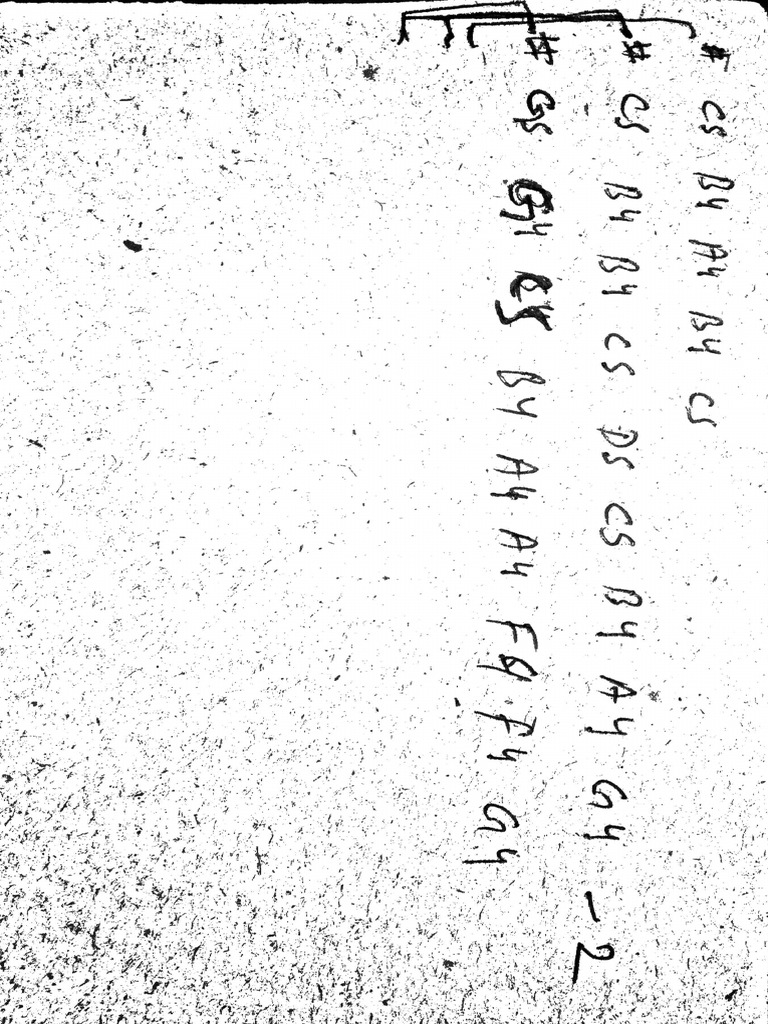 # C5 B4 A4 B4 C5
# C5 B4 B4 C5 D5 C5 B4 A4 G4 - 2
# G5 G4 B4 A4 A4 F4 F4 G4